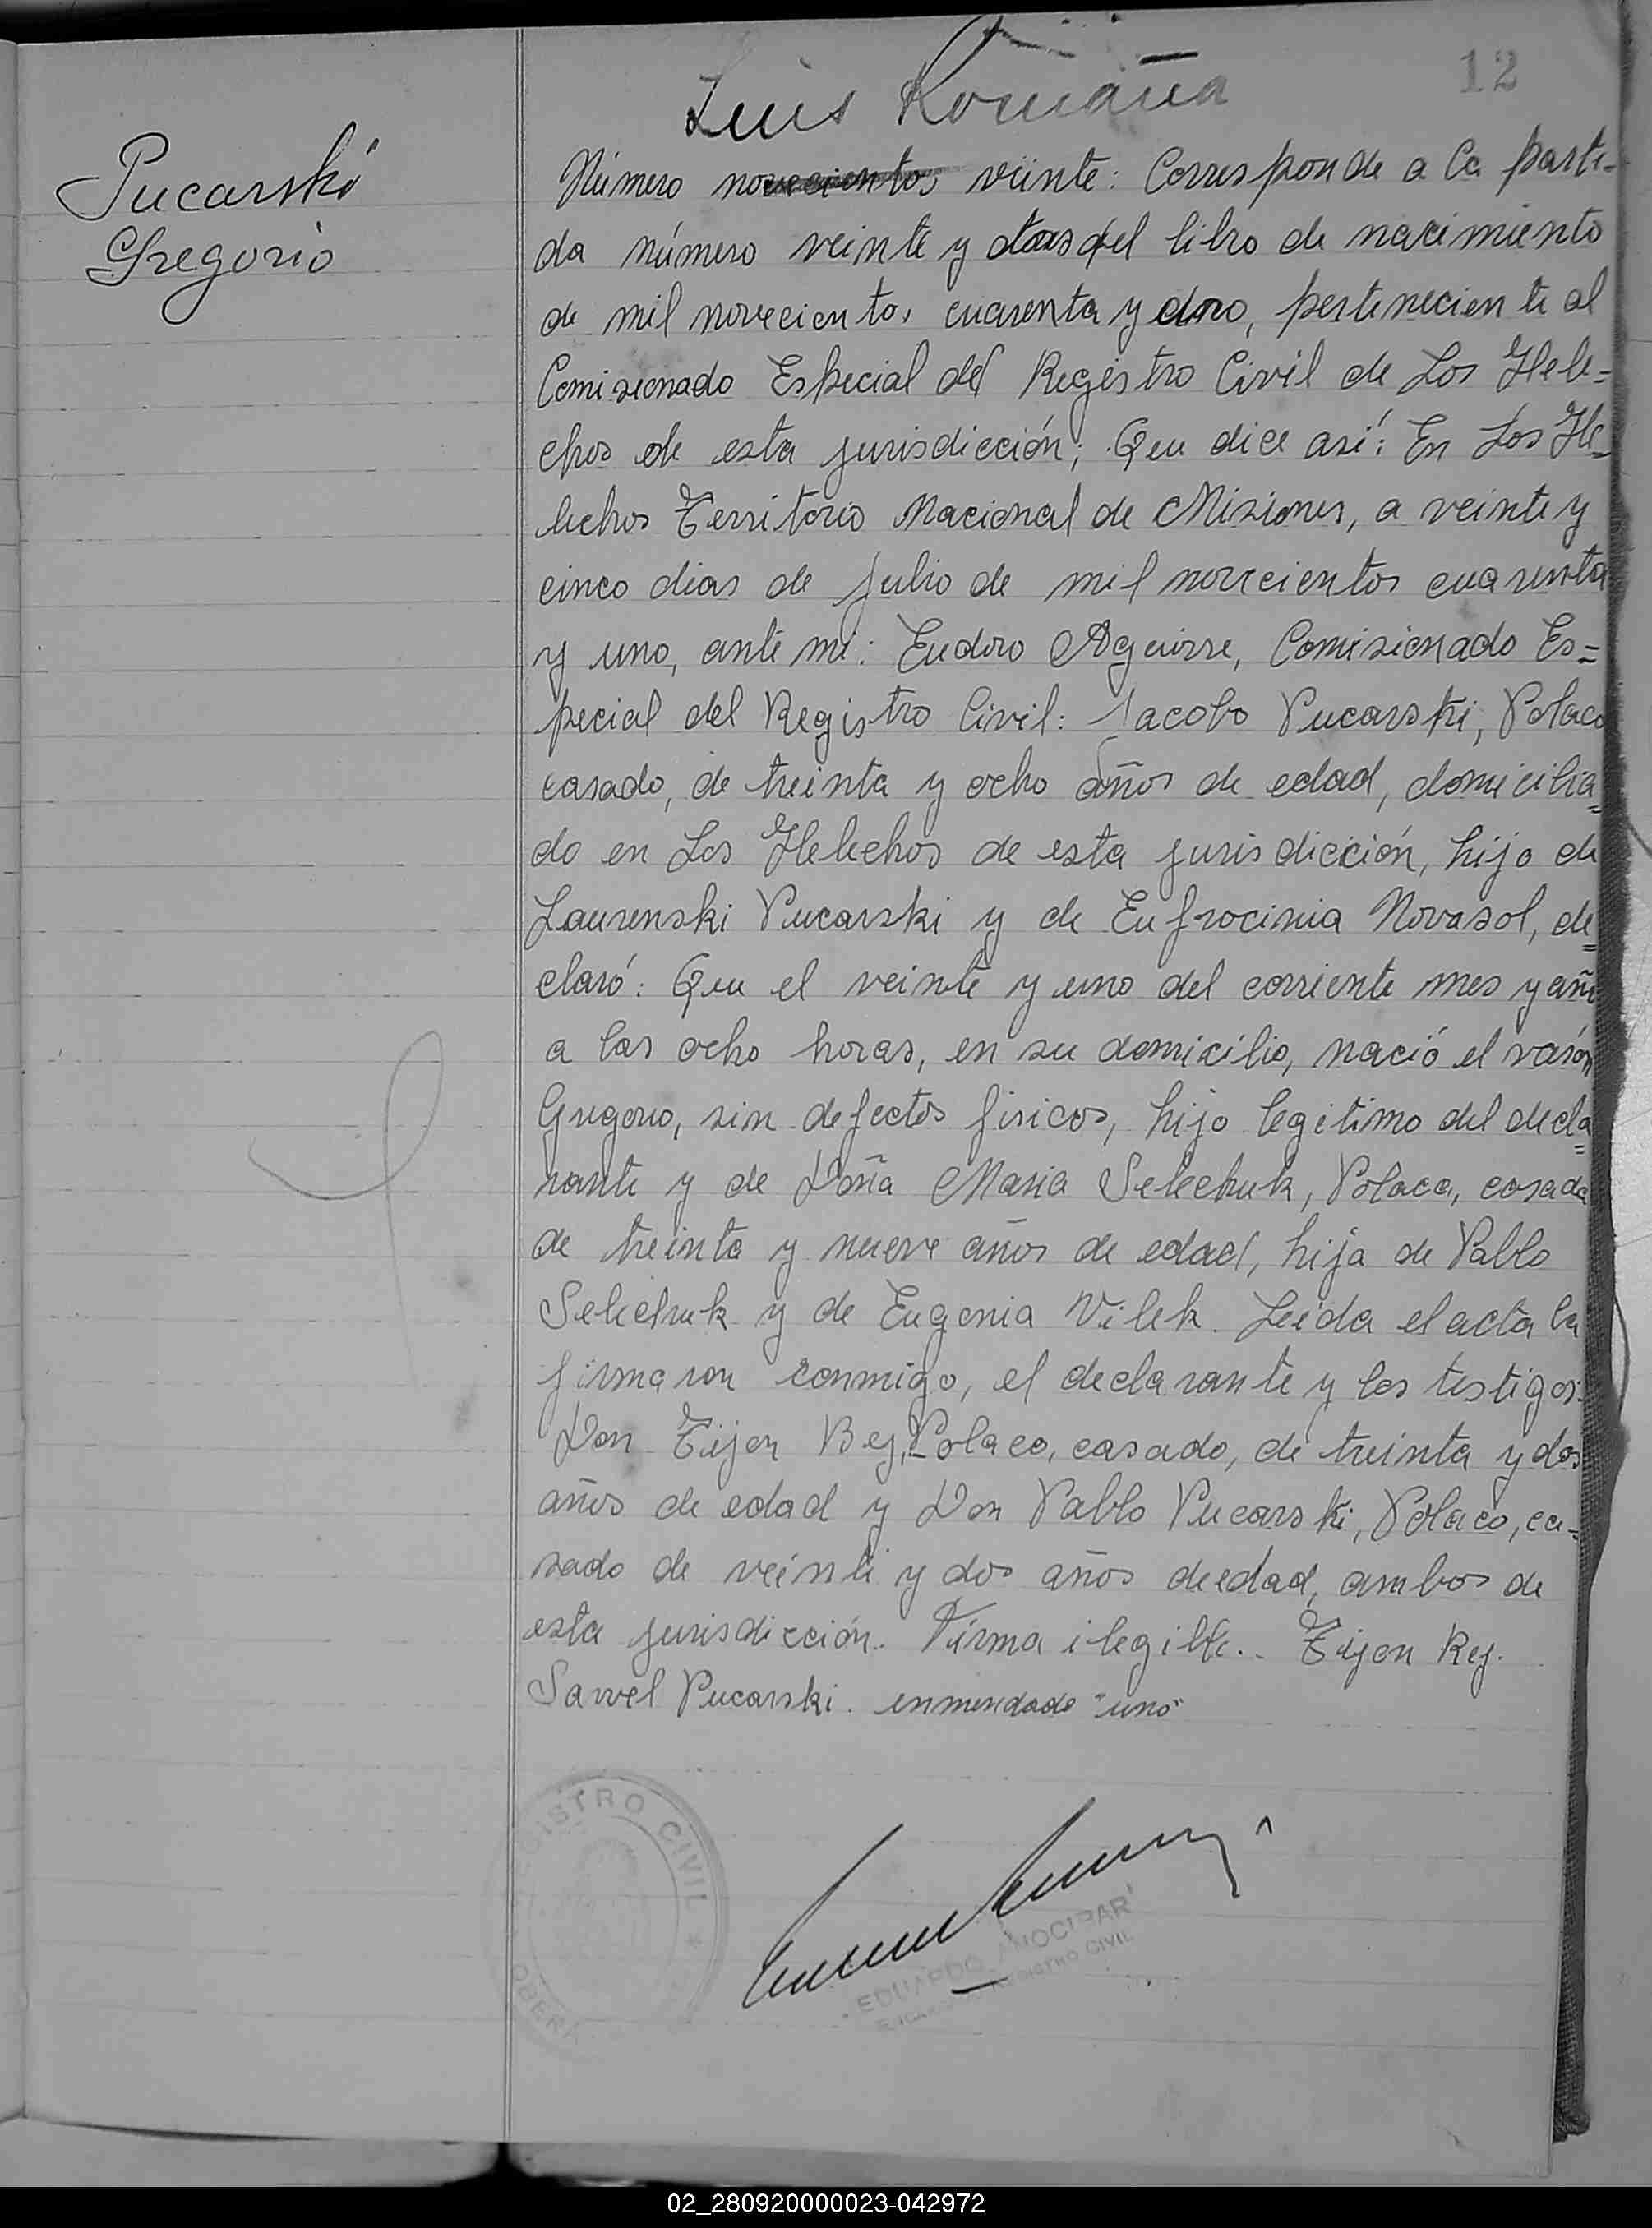 12
Luis Romaña
Pucarski
Gregorio
Número novecientos veinte: Corresponde a la parti-
da número veinte y dos del libro de nacimiento
de mil novecientos cuarenta y uno, perteneciente al
Comisionado Especial del Registro Civil de Los Hele=
chos de esta jurisdicción; Que dice así: En Los He=
lechos Territorio Nacional de Misiones, a veinte y
cinco dias de Julio de mil novecientos cuarenta
y uno, ante mi: Eudoro Aguirre, Comisionado Es=
pecial del Registro Civil: Jacobo Pucarski, Polaco
casado, de treinta y ocho años de edad, domicilia=
do en Los Helechos de esta jurisdicción, hijo de
Laurenski Pucarski y de Eufrocinia Novasol, de=
claró: Que el veinte y uno del corriente mes y año
a las ocho horas, en su domicilio, nació el varón
Gregorio, sin defectos fisicos, hijo legitimo del decla=
rante y de Doña Maria Selechuk, Polaca, casada
de treinta y nueve años de edad, hija de Pablo
Selechuk y de Eugenia Vilek. Leida el acta la
firmaron conmigo, el declarante y los testigos:
Don Tijon Bey, Polaco, casado, de treinta y dos
años de edad y Don Pablo Pucarski, Polaco, ca-
sado de veinte y dos años de edad, ambos de
esta jurisdicción. Firma ilegible.. Tijon Rej.
Sawel Pucarski. enmendado "uno"
REGISTRO CIVIL
OBERA
EDUARDO
REGISTRO CIVIL
02_280920000023-042972